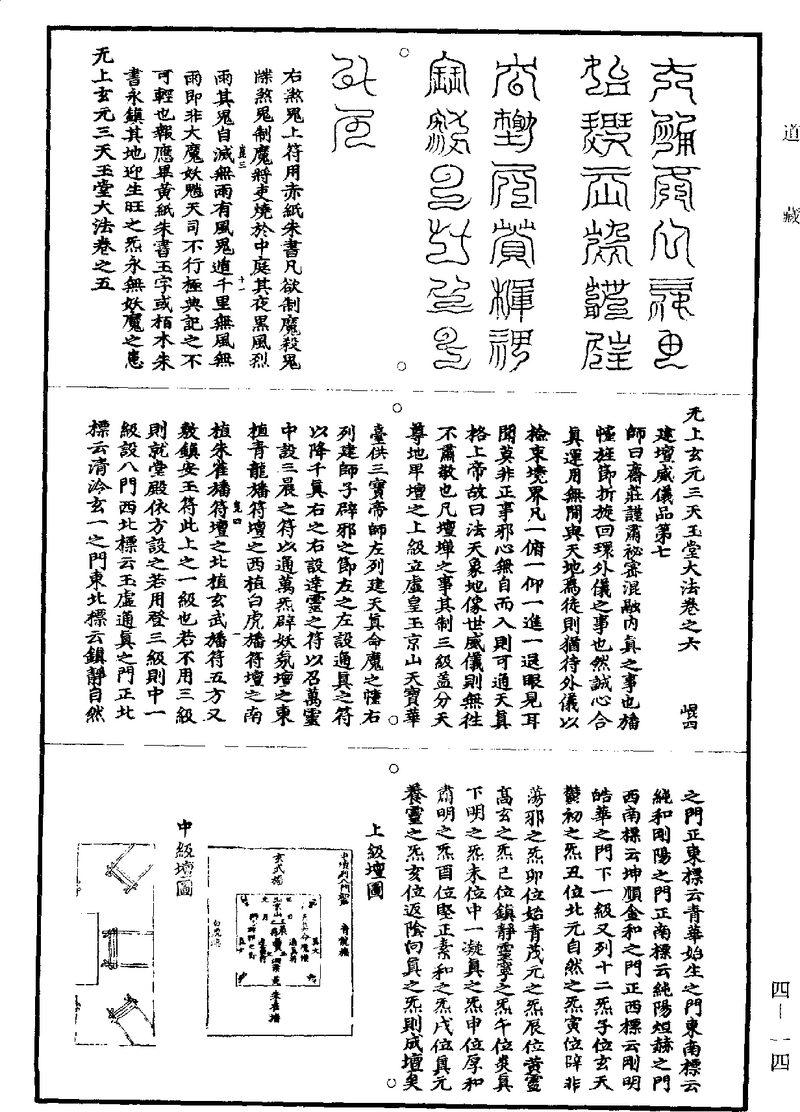 道藏
右煞鬼上符用赤紙朱書凡欲制魔殺鬼
牒煞鬼制魔將吏燒於中庭其夜黑風烈
雨其鬼自滅無雨有風鬼遁千里無風無
雨即非大魔妖魈天司不行極典記之不
可輕也報應畢黃紙朱書玉字或栢木朱
書永鎮其地迎生旺之炁永無妖魔之患
无上玄元三天玉堂大法卷之五
无上玄元三天玉堂大法卷之六
崐四
建壇威儀品第七
師曰齋莊謹肅祕密混融內真之事也旛
幢旌節折旋回環外儀之事也然誠心合
真運用無間與天地為徒則猶待外儀以
檢束境界凡一俯一仰一進一退眼見耳
聞莫非正事邪心無自而入則可通天真
格上帝故曰法天象地像世威儀則無往
不肅敬也凡壇墠之事其制三級蓋分天
尊地卑壇之上級立虛皇玉京山天寶華
臺供三寶帝師左列建天真命魔之幢右
列建師子辟邪之節左之左設通真之符
以降千真右之右設達靈之符以召萬靈
中設三晨之符以通萬炁辟妖氛壇之東
植青龍旛符壇之西植白虎旛符壇之南
植朱雀旛符壇之北植玄武旛符五方又
敷鎮安玉符此上之一級也若不用三級
則就堂殿依方設之若用登三級則中一
級設八門西北標云玉虛通真之門正北
標云清泠玄一之門東北標云鎮靜自然
之門正東標云青華始生之門東南標云
純和剛陽之門正南標云純陽烜赫之門
西南標云坤順金和之門正西標云剛明
皓華之門下一級又列十二炁子位玄天
鬱初之炁丑位北元自然之炁寅位辟非
蕩邪之炁卯位始青茂元之炁辰位黃靈
高玄之炁巳位鎮靜靈寧之炁午位炎真
下明之炁未位中一凝真之炁申位厚和
肅明之炁酉位堅正素和之炁戌位真元
養靈之炁亥位返陰向真之炁則成壇矣
上級壇圖
玄武旛
青龍旛
朱雀旛
中級壇圖
四－一四